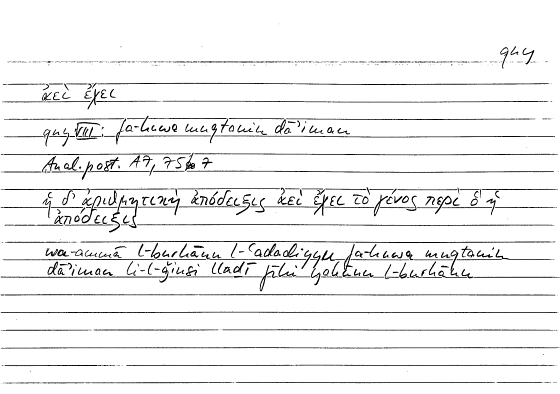 qny
ἀεὶ ἔχει
qny VIII: fa-huwa muqtanin dāʾiman
Anal. post. A7, 75b 7
ἡ δ' ἀριθμητικὴ ἀπόδειξις ἀεὶ ἔχει τὸ γένος περὶ ὃ ἡ
ἀπόδειξις
wa-ammā l-burhānu l-ʿadadiyyu fa-huwa muqtanin
dāʾiman li-l-ǧinsi llaḏī fīhi yakūnu l-burhānu